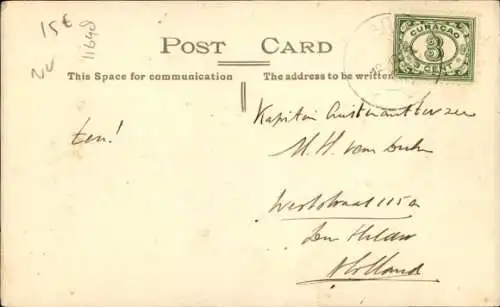 15€
NV
11698
POST CARD
This Space for communication
The address to be written
CURAÇAO
3
CENT
Kapitein
M. H. van
Weststraat 115a
Den Helder
Holland